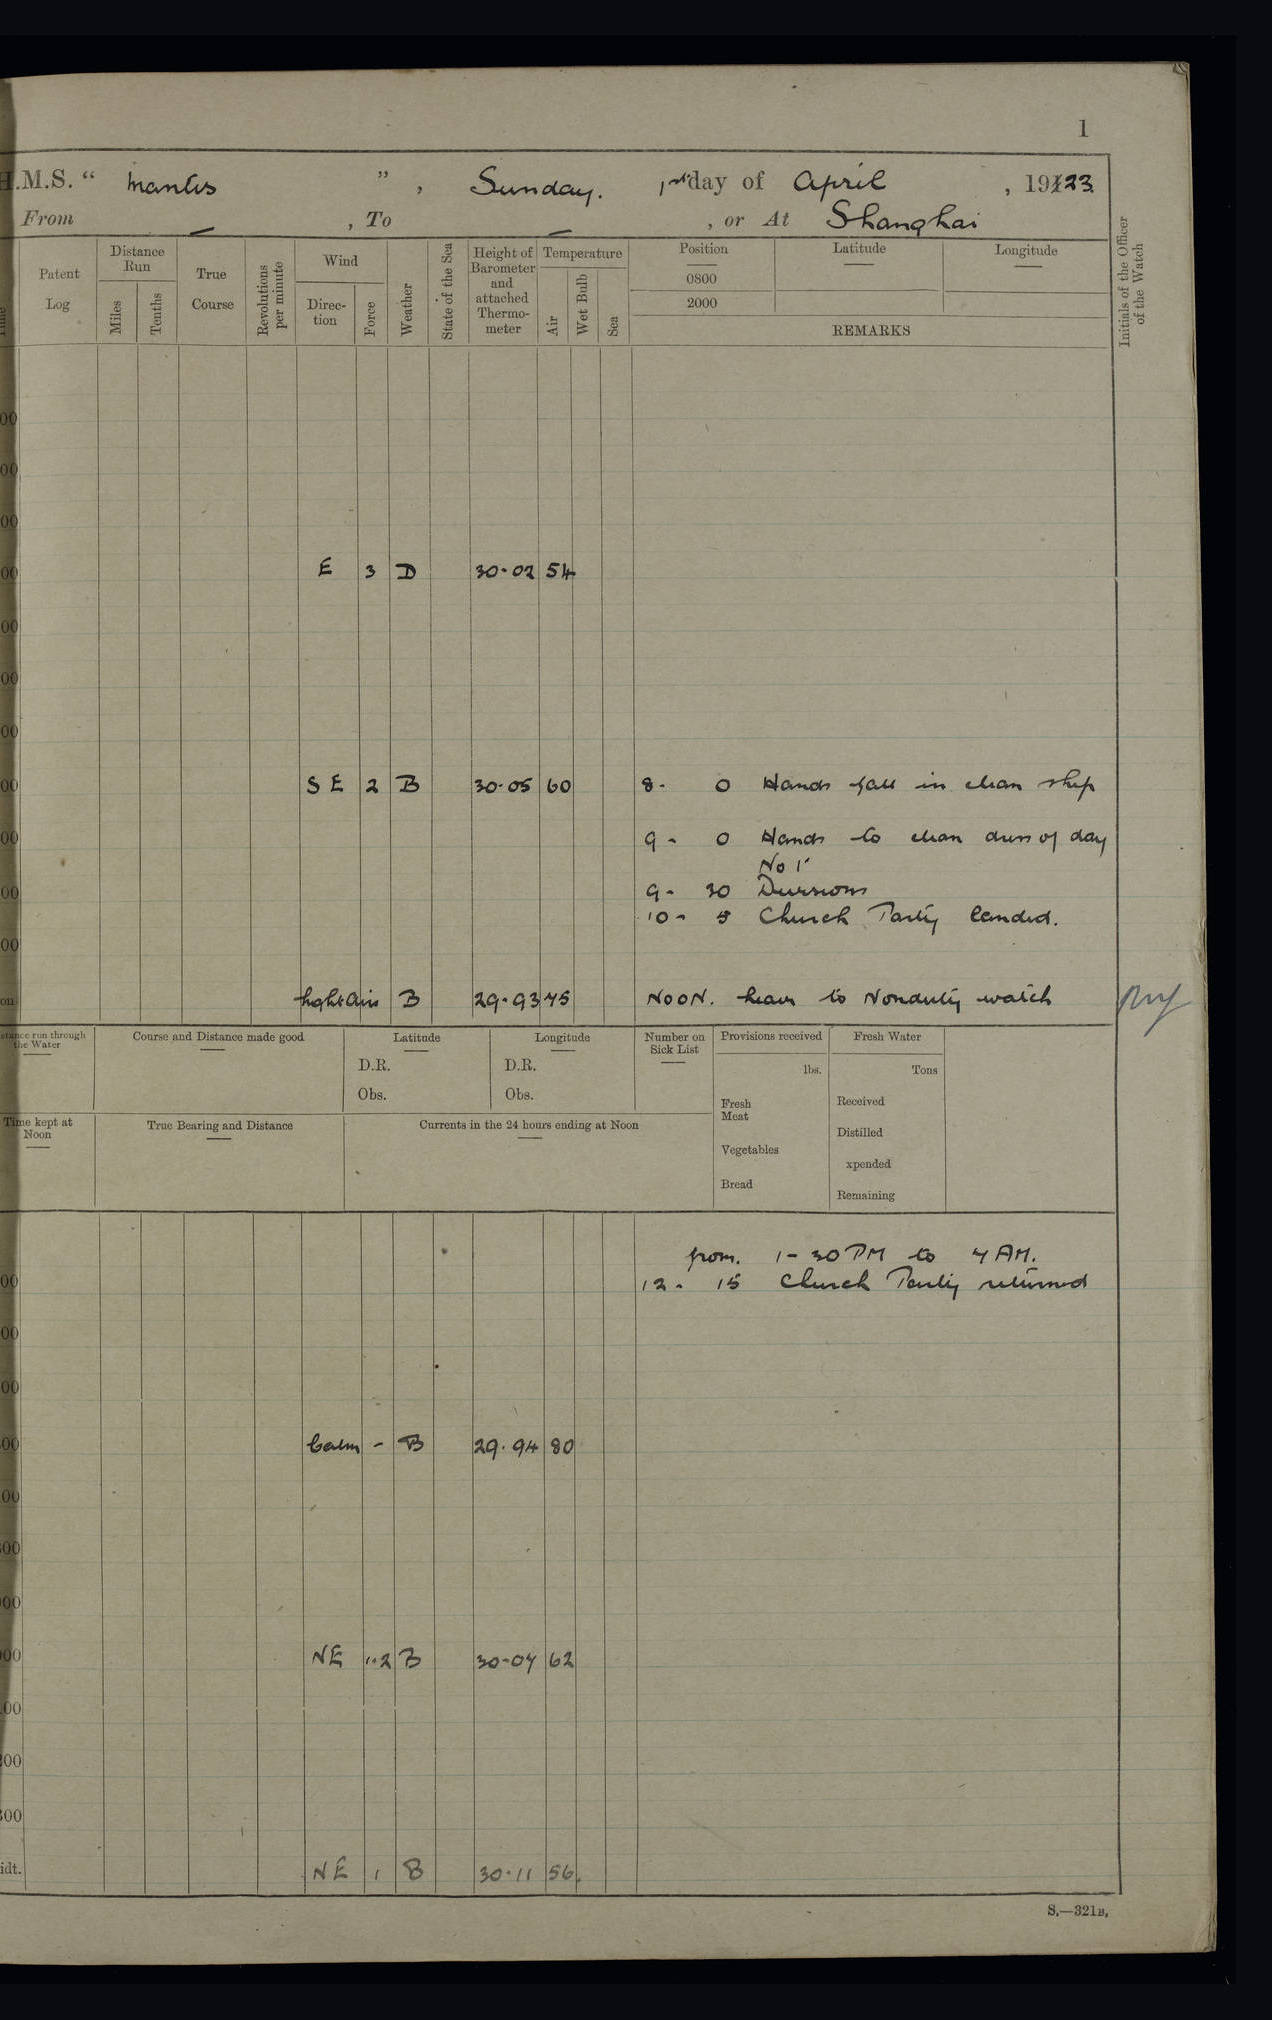 1
H.M.S. “ Mantis ” , Sunday. 1st day of April , 1923.
From — , To — , or At Shanghai
Time
Patent Log
Distance Run
Miles
Tenths
True Course
Revolutions per minute
Wind
Direc-tion
Force
Weather
State of the Sea
Height of Barometer and attached Thermo-meter
Temperature
Air
Wet Bulb
Sea
Position
0800
2000
Latitude
Longitude
REMARKS
Initials of the Officer of the Watch
00
00
00
00 E 3 D 30.02 54
00
00
00
00 SE 2 B 30.05 60 8. 0 Hands fall in clean ship
00 9. 0 Hands to clean dress of day
No 1
00 9. 30 Divisions
10. 5 Church Party landed.
00
on light airs B 29.93 75 NOON. leave to Nonduty watch
stance run through the Water
Course and Distance made good
Latitude
D.R.
Obs.
Longitude
D.R.
Obs.
Number on Sick List
Provisions received
lbs.
Fresh Meat
Vegetables
Bread
Fresh Water
Tons
Received
Distilled
xpended
Remaining
Time kept at Noon
True Bearing and Distance
Currents in the 24 hours ending at Noon
from. 1-30 PM to 7 AM.
00 12. 15 Church Party returned
00
00
00 Calm - B 29.94 80
00
00
00
00 NE 1.2 B 30.07 62
00
00
00
idt. NE 1 B 30.11 56.
S.—321B.